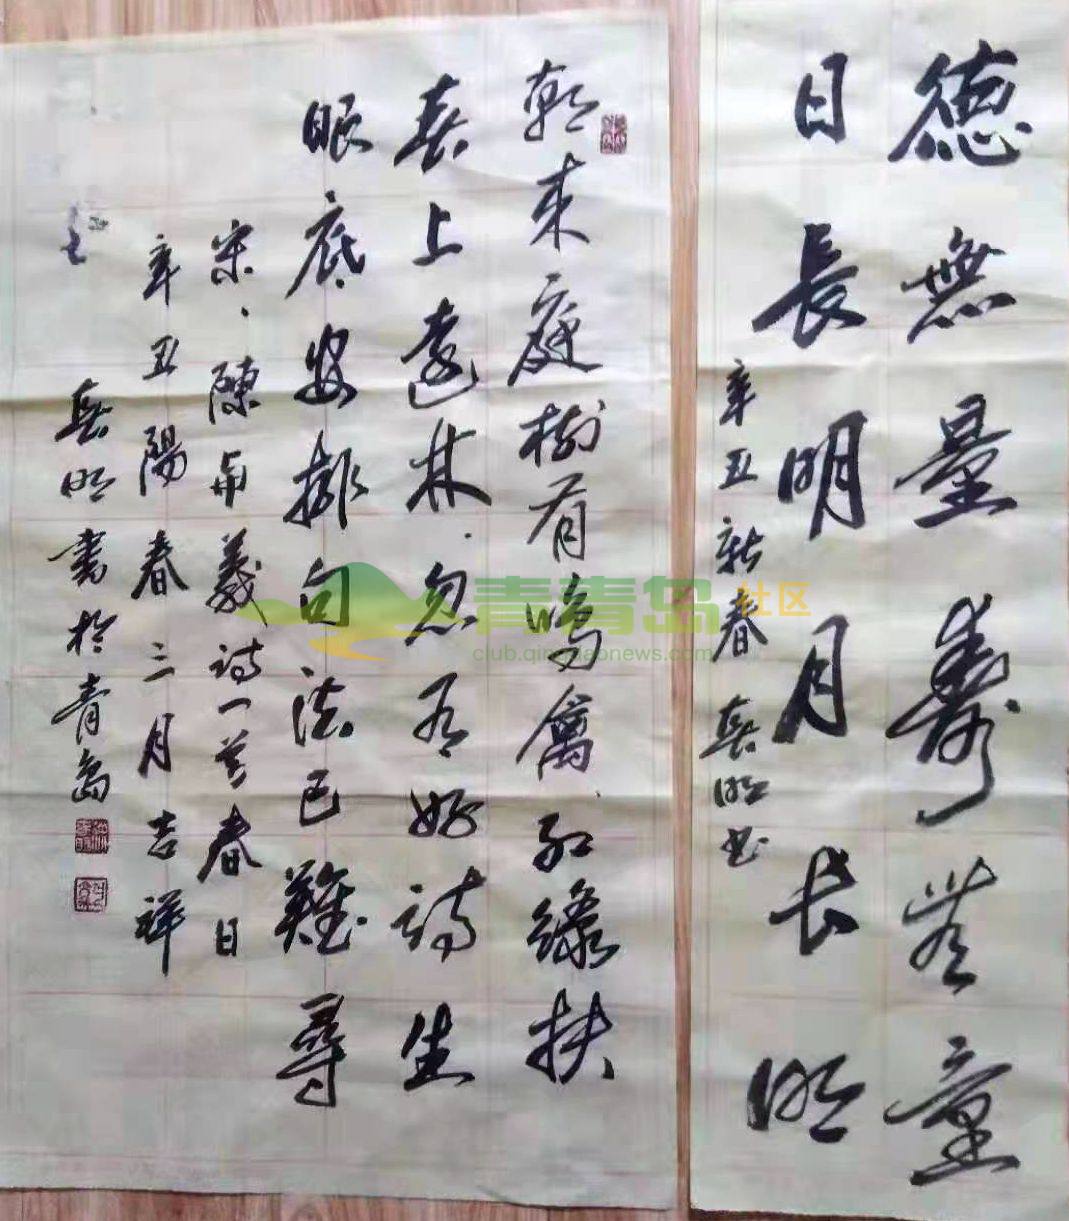 德無量壽無量
日長明月长明
辛丑新春 明书
朝来庭樹有鳴禽红綠扶
春上遠林忽有好詩生
眼底安排句法已難尋
宋、陳与義詩一首春日
辛丑陽春三月吉祥
明書於青島
青青岛社区
club.qingdaonews.com